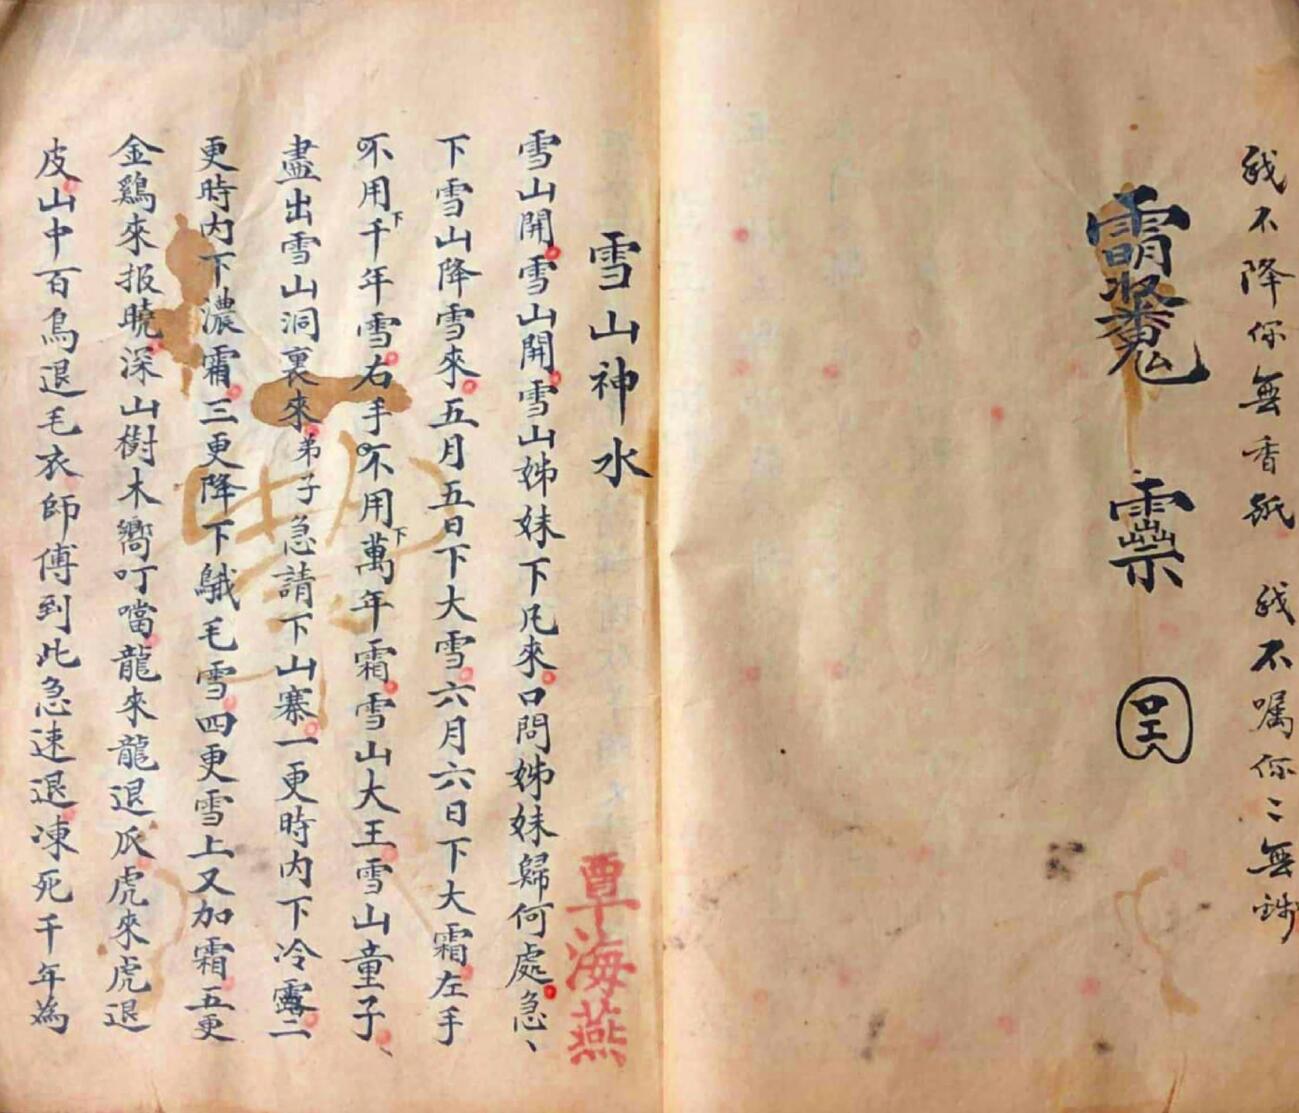 我不降你無香紙 我不嘱你〻無錢
雪山神水
覃海燕
雪山開雪山開雪山姊妹下凡來口問姊妹歸何處急丶
下雪山降雪來五月五日下大雪六月六日下大霜左手
不用下千年雪右手不用下萬年霜雪山大王雪山童子丶
盡出雪山洞裏來弟子急請下山寨一更時內下冷露二
更時內下濃霜三更降下鵝毛雪四更雪上又加霜五更
金鷄來报曉深山樹木嚮叮噹龍來龍退爪虎來虎退
皮山中百鳥退毛衣師傅到此急速退凍死千年為